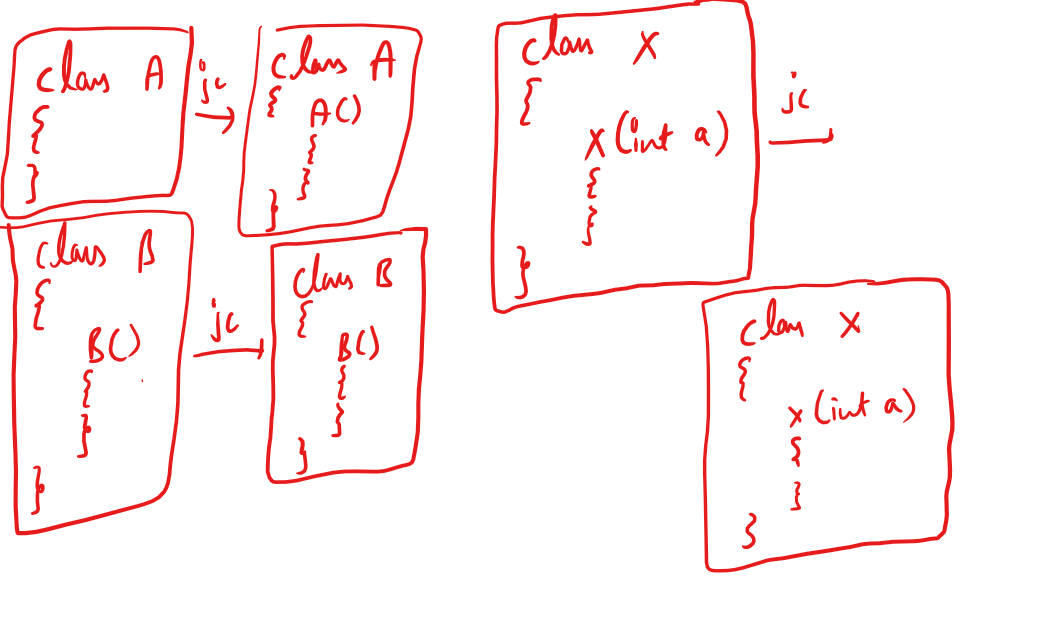 class A
{
}
jc
class A
{
A()
{
}
}
class B
{
B()
{
}
}
jc
class B
{
B()
{
}
}
class X
{
X(int a)
{
}
}
jc
class X
{
x(int a)
{
}
}